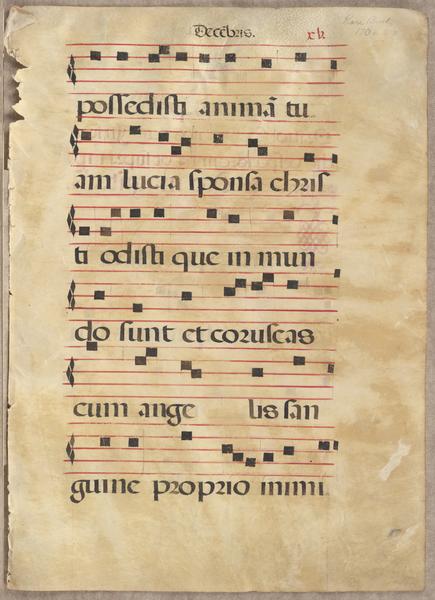 Decẽbris. xv.
possedisti animã tu
am lucia sponsa chris
ti odisti que in mun
do sunt et coruscas
cum ange lis san
guine proprio inimi